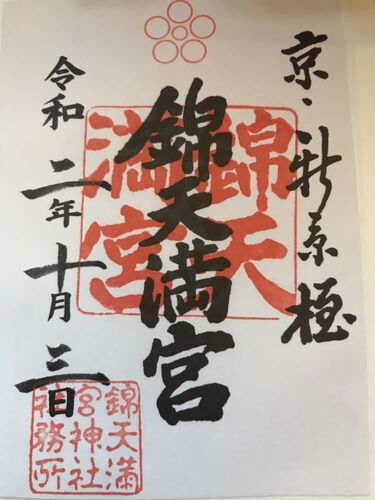 京・新京極
錦天満宮
錦天
満宮
令和二年十月三日
錦天満
宮神社
神務所